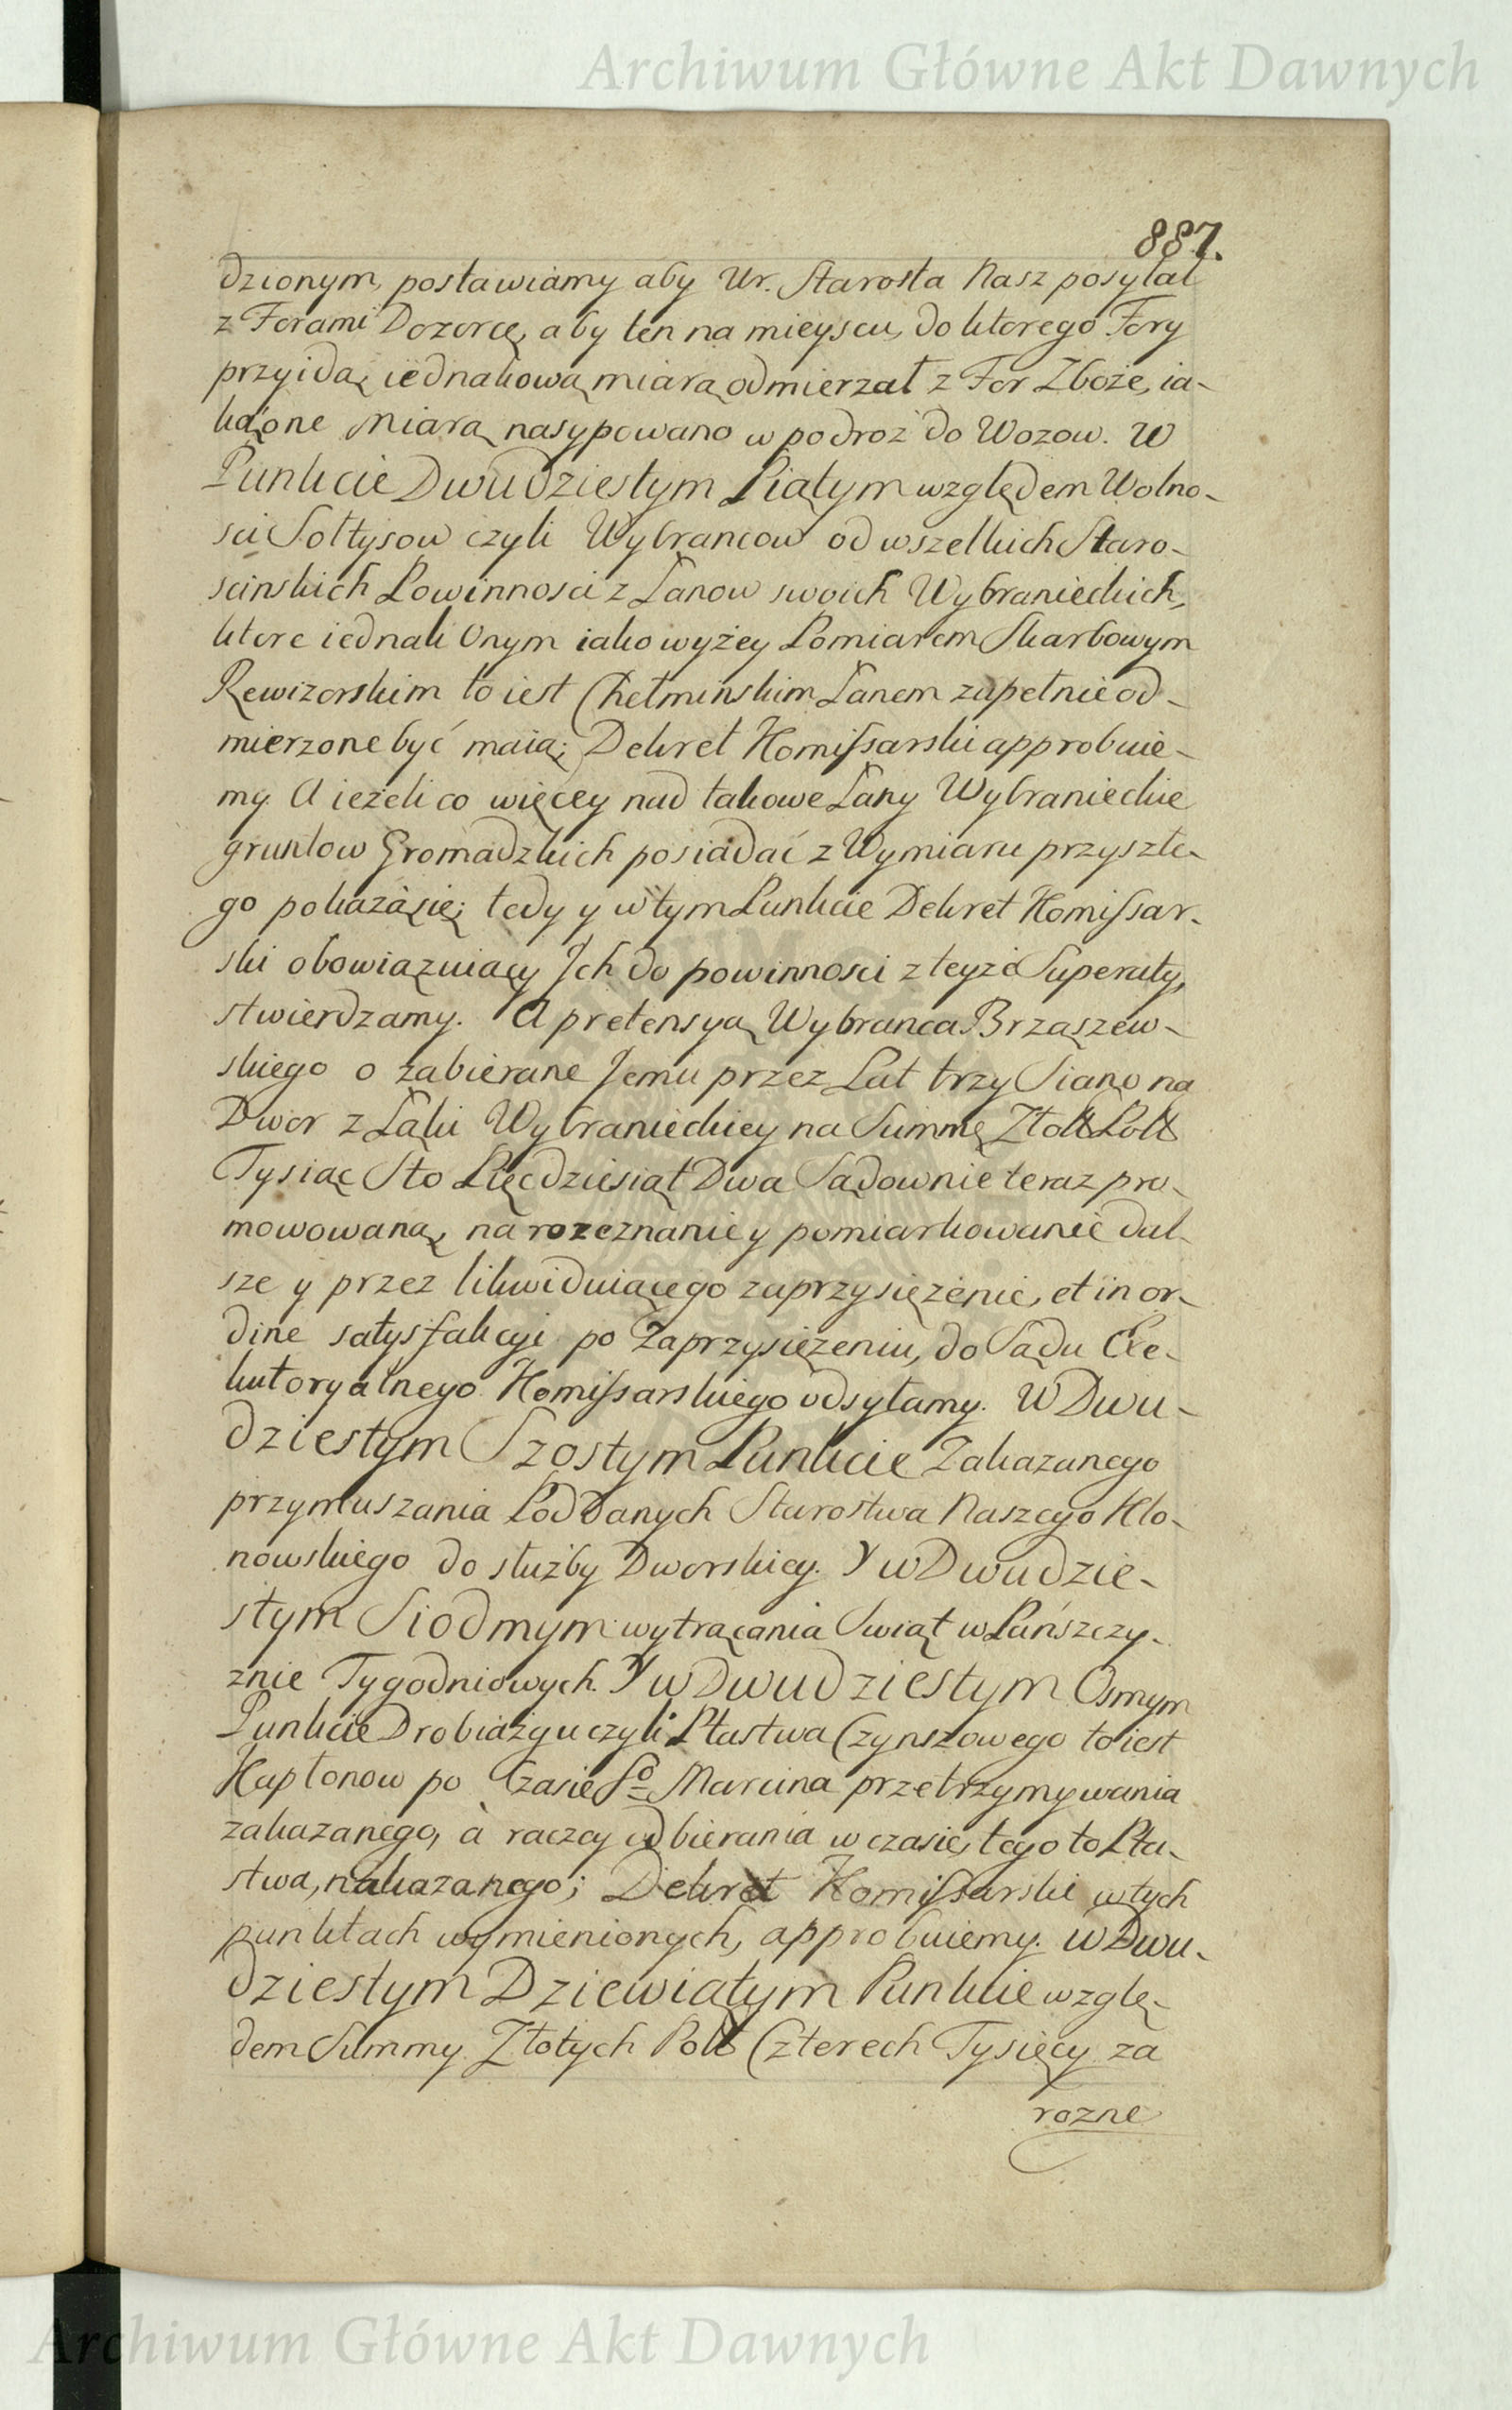 Archiwum Główne Akt Dawnych
887.
dzionym, postawiamy aby Ur. Starosta Nasz posyłał
z Forami Dozorcę, aby ten na mieyscu, do ktorego Fory
przyidą, iednakową miarą odmierzał z For Zboże, ia-
ką one Miarą nasypowano w podroż do Wozow. W
Punkcie Dwudziestym Piątym względem Wolno-
sci Sołtysow czyli Wybrancow od wszelkich Staro-
scinskich Powinnosci z Łanow swoich Wybranieckich,
ktore iednak Onym iako wyżey Pomiarem Skarbowym
Rewizorskim to iest Chełminskim Łanem zupełnie od-
mierzone być maią; Dekret Kommissarski approbuie-
my. A ieżeli co więcey nad takowe Łany Wybranieckie
gruntow Gromadzkich posiadać z Wymiaru przyszłe-
go pokażą się; tedy y w tym Punkcie Dekret Komissar-
ski obowiązuiący Ich do powinnosci z teyże Superaty,
stwierdzamy. A pretensyą Wybranca Brzązew-
skiego o zabierane Jemu przez Lat trzy Siano na
Dwor z Łąki Wybranieckiey na Summę Złott Polt
Tysiąc Sto Pięcdziesiąt Dwa Sądownie teraz pro-
mowowaną, na rozeznanie y pomiarkowanie dal-
sze y przez likwiduiącego zaprzysiężenie, et in or-
dine satysfakcyi po Zaprzysiężeniu, do Sądu Exe-
kutoryalnego Komissarskiego odsyłamy. W Dwu-
dziestym Szostym Punkcie Zakazanego
przymuszania Poddanych Starostwa Naszego Klo-
nowskiego do służby Dworskiey. Y w Dwudzie-
stym Siodmym wytrącania Swiąt w Pańszczy-
znie Tygodniowych. Y w Dwudziestym Osmym
Punkcie Drobiazgu czyli Ptastwa Czynszowego to iest
Kapłonow po Czasie So Marcina przetrzymywania
zakazanego, à raczey odbierania w czasie, tego to Pta-
stwa, nakazanego; Dekret Komissarski w tych
punktach wymienionych, approbuiemy. W Dwu-
dziestym Dziewiątym Punkcie wzglę-
dem Summy Złotych Polt Czterech Tysięcy za
rozne
Archiwum Główne Akt Dawnych